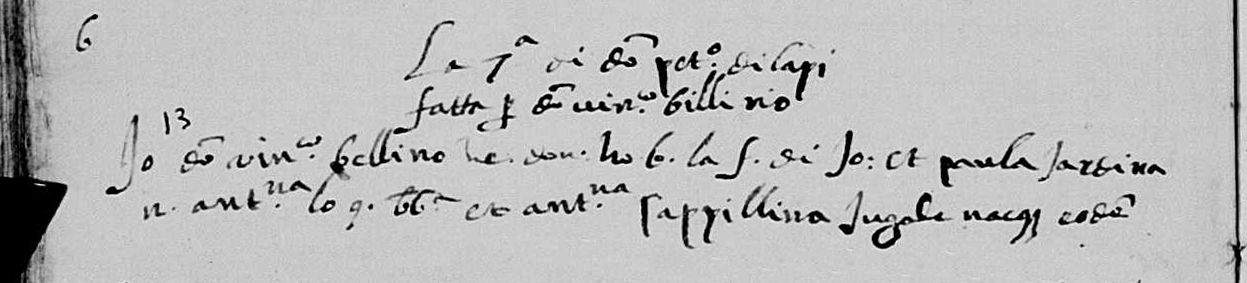 6
La 7ª di do pet.º di lapi
fatta p do vin.º billino
13
Io do vin.º bellino v.c. don. ho b. la f. di Jo: et paula Jardina
n. ant.na lo q. bb. et ant.na Cappillina Jugale nacq eode